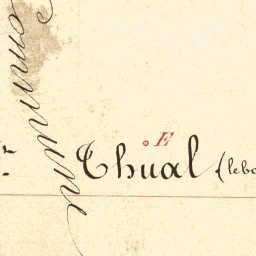 Commune
E
Thual (lebo